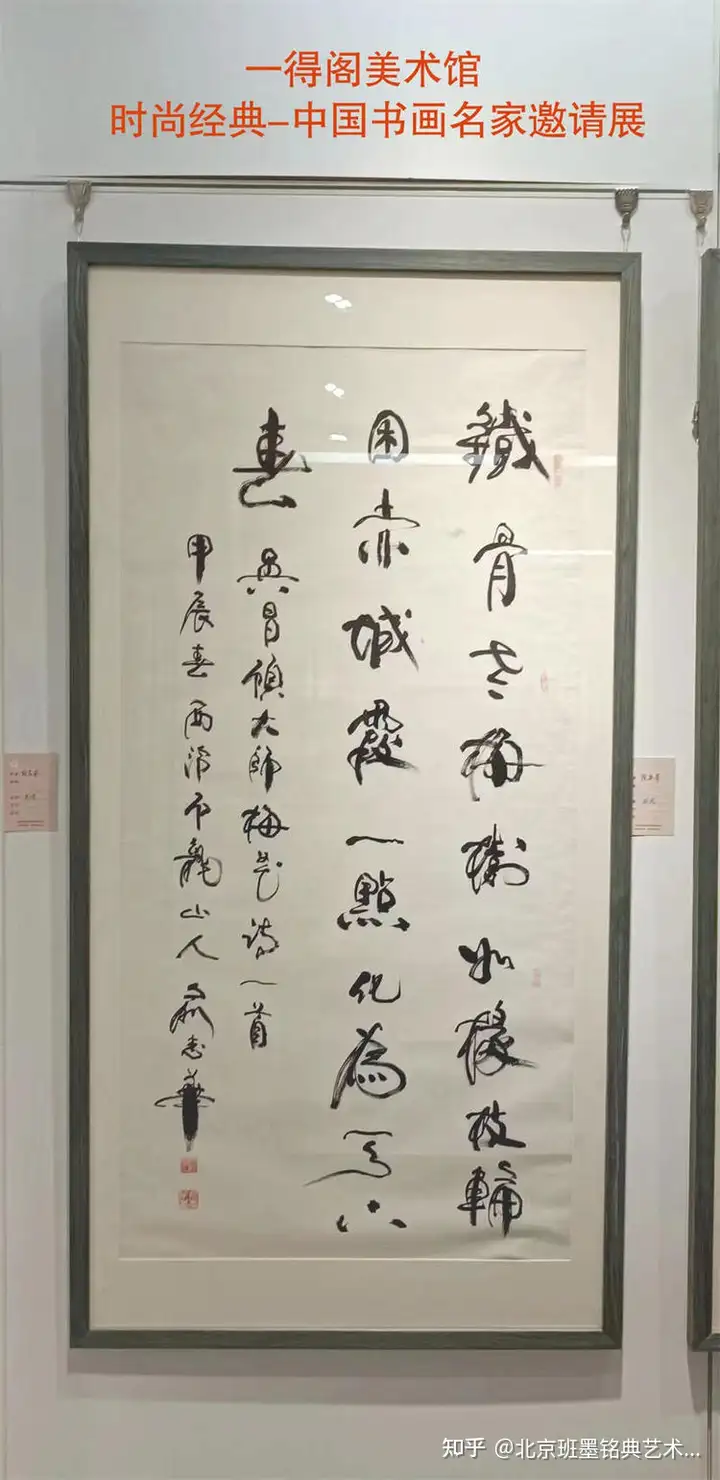 一得阁美术馆
时尚经典-中国书画名家邀请展
鐵骨老梅樹如椽枝輪
囷赤城霞一點化為天下
春 吳昌碩大師梅花詩一首
甲辰春西泠山人志華
知乎 @北京班墨铭典艺术...